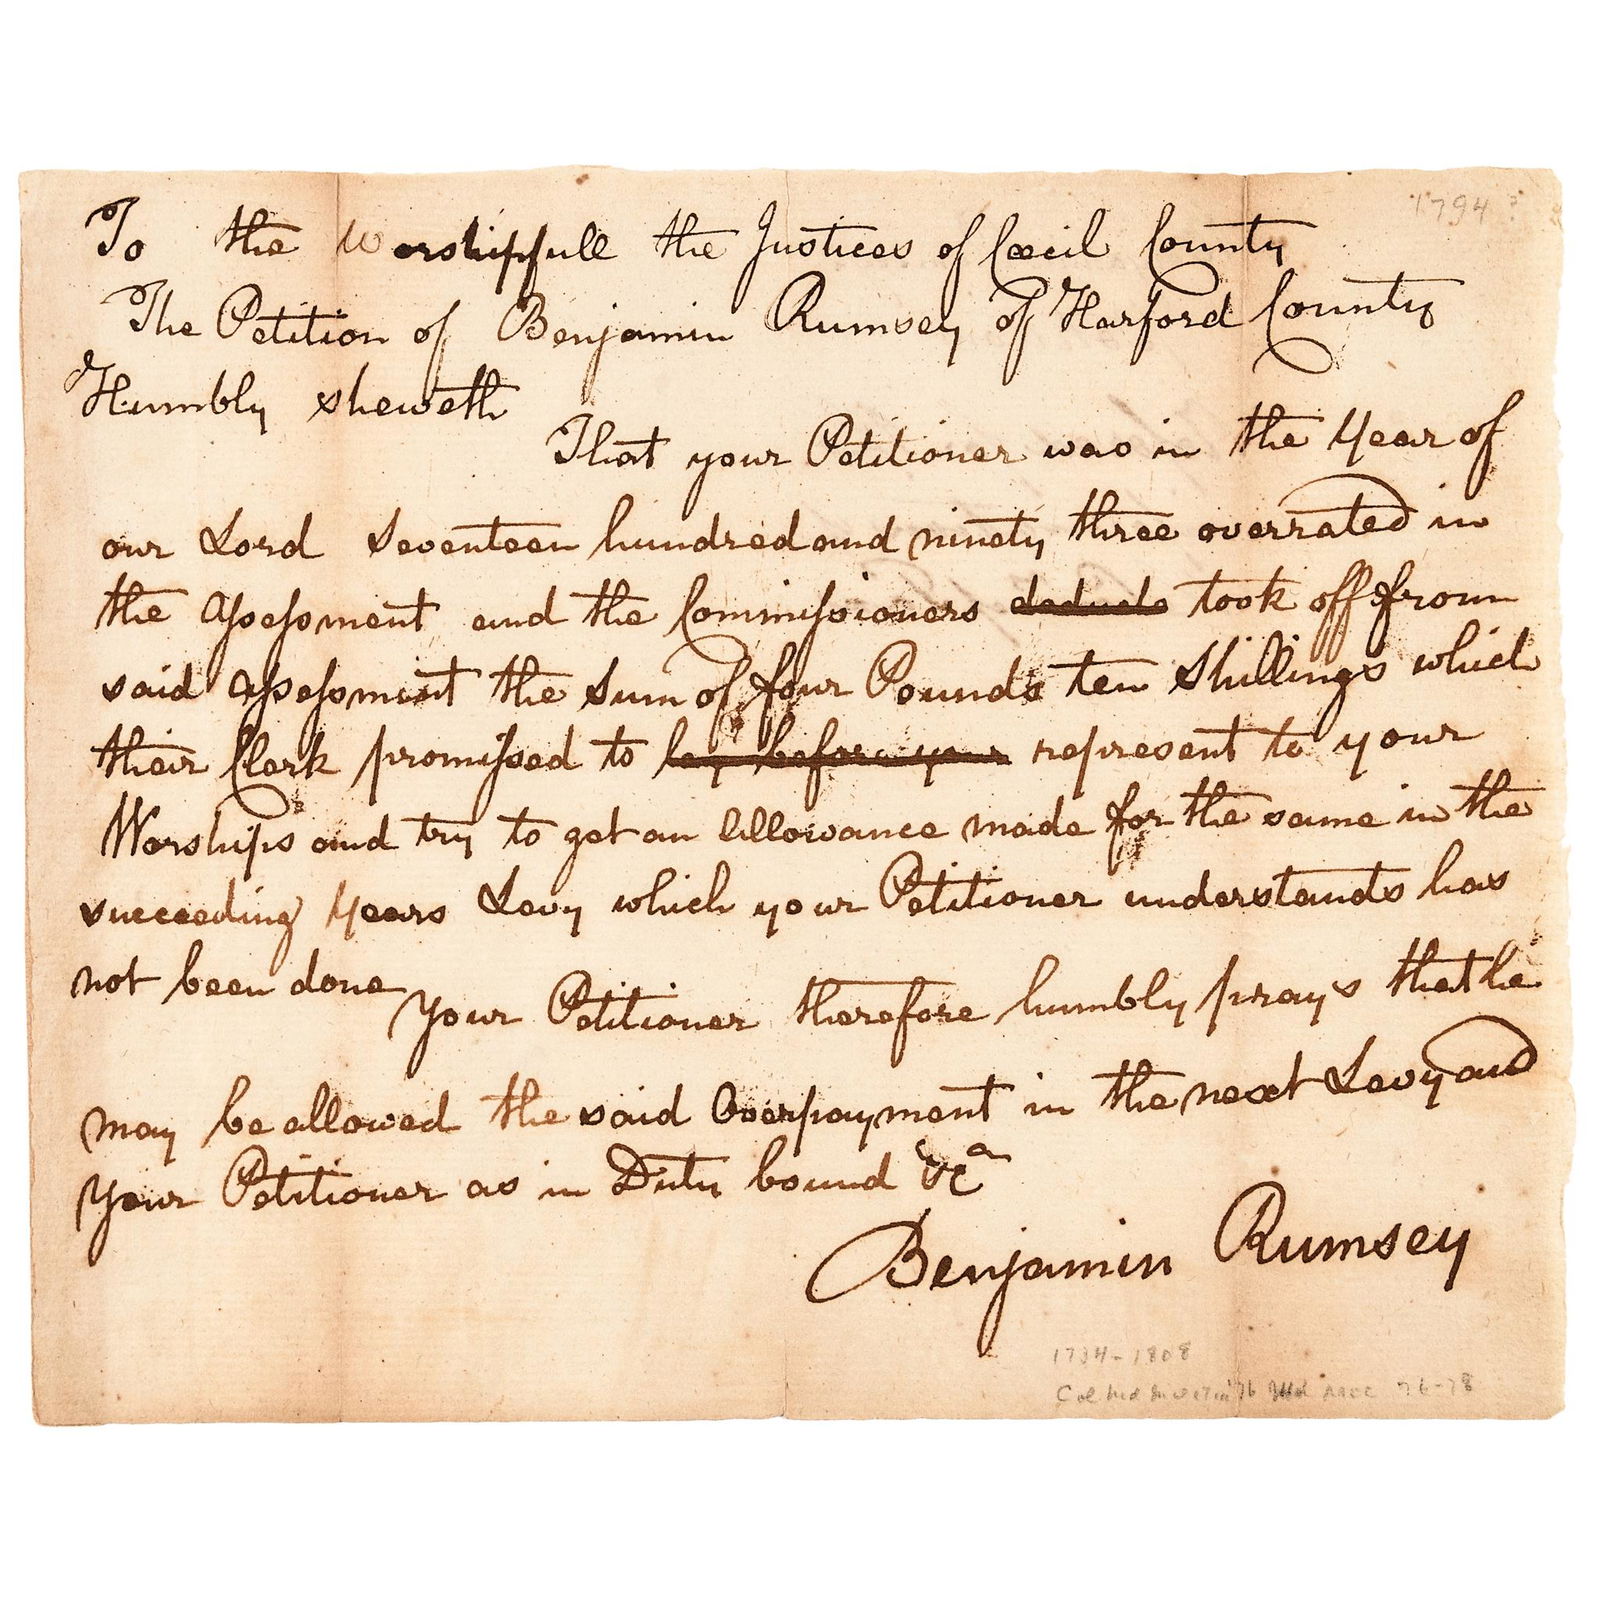 1794 ?
To the Worshipfull the Justices of Cecil County
The Petition of Benjamin Rumsey of Harford County
Humbly sheweth
That your Petitioner was in the Year of
our Lord Seventeen hundred and ninety three overrated in
the Assessment and the Commissioners took off from
said Assessment the Sum of four Pounds ten Shillings which
their Clerk promissed to lay before your represent to your
Worships and try to get an Allowance made for the same in the
succeeding Years Levy which your Petitioner understands has
not been done
Your Petitioner therefore humbly prays that he
may be allowed the said Overpayment in the next Levy and
your Petitioner as in Duty bound &ca
Benjamin Rumsey
1734-1808
Col 76-78